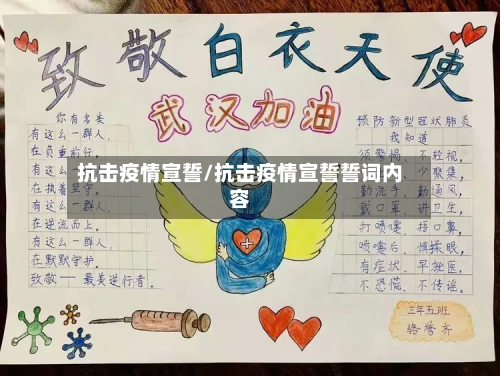 致敬白衣天使
武汉加油
你有多美
有这么一群人，
在负重前行，
有这么
在执着坚守，
有这么一群人，
在逆流而上，
有这么一群人，
在默默守护，
致敬——最美逆行者。
抗击疫情宣誓/抗击疫情宣誓誓词内
容
预防新型冠状肺炎
我知道
须警惕、不轻视，
少聚集，
勤洗手、勤通风，
戴口罩、讲卫生，
打喷嚏、捂口鼻，
喷嚏后、慎揉眼，
有症状、早就医，
不恐慌、不传谣。
三年五班
骆誉齐